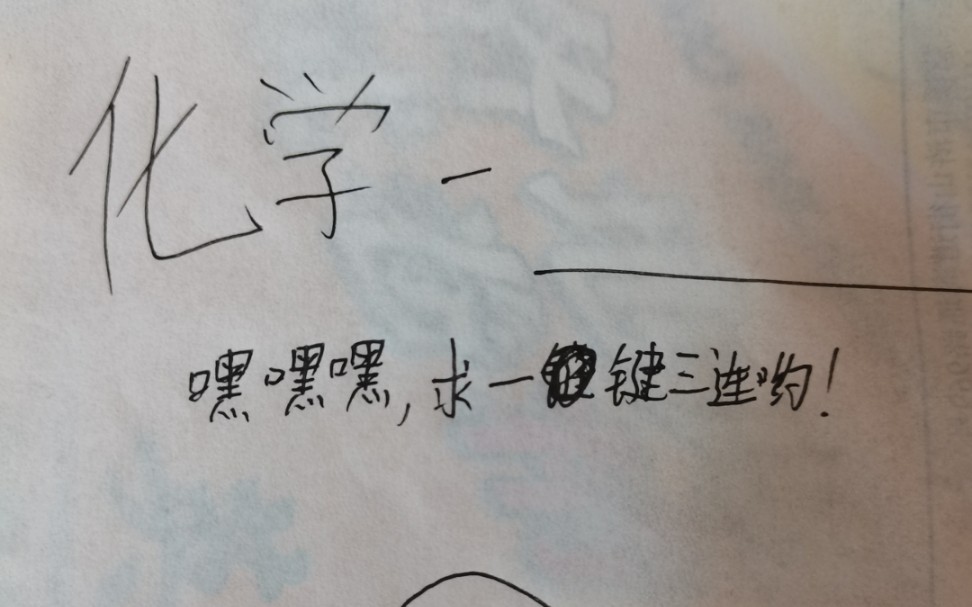 化学-
嘿嘿嘿,求一键三连哟!